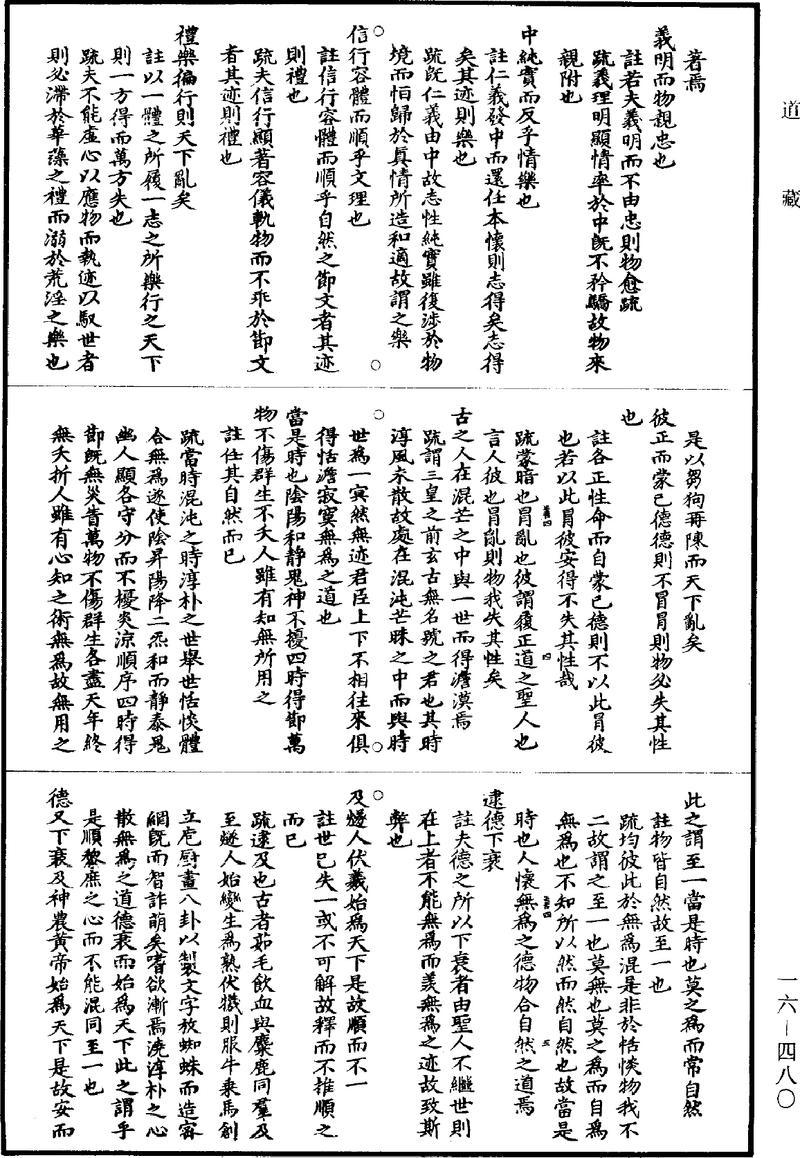 道藏
著焉
義明而物親忠也
註若夫義明而不由忠則物愈疏
疏義理明顯情率於中旣不矜驕故物來
親附也
中純實而反乎情樂也
註仁義發中而還任本懷則志得矣志得
矣其迹則樂也
疏旣仁義由中故志性純實雖復涉於物
境而恒歸於眞情所造和適故謂之樂
信行容體而順乎文理也
註信行容體而順乎自然之節文者其迹
則禮也
疏夫信行顯著容儀軌物而不乖於節文
者其迹則禮也
禮樂徧行則天下亂矣
註以一體之所履一志之所樂行之天下
則一方得而萬方失也
疏夫不能虛心以應物而執迹以馭世者
則必滯於華藻之禮而溺於荒淫之樂也
是以芻狗再陳而天下亂矣
彼正而蒙己德德則不冒冒則物必失其性
也
註各正性命而自蒙己德則不以此冒彼
也若以此冒彼安得不失其性哉
疏蒙暗也冒亂也彼謂履正道之聖人也
言人彼也冒亂則物我失其性矣
古之人在混芒之中與一世而得澹漠焉
疏謂三皇之前玄古無名號之君也其時
淳風未散故處在混沌芒昧之中而與時
世爲一冥然無迹君臣上下不相往來俱
得恬澹寂寞無爲之道也
當是時也陰陽和靜鬼神不擾四時得節萬
物不傷群生不夭人雖有知無所用之
註任其自然而已
疏當時混沌之時淳朴之世舉世恬惔體
合無爲遂使陰昇陽降二炁和而靜泰鬼
幽人顯各守分而不擾炎涼順序四時得
節旣無災眚萬物不傷群生各盡天年終
無夭折人雖有心知之術無爲故無用之
此之謂至一當是時也莫之爲而常自然
註物皆自然故至一也
疏均彼此於無爲混是非於恬惔物我不
二故謂之至一也莫無也莫之爲而自爲
無爲也不知所以然而然自然也故當是
時也人懷無爲之德物合自然之道焉
逮德下衰
註夫德之所以下衰者由聖人不繼世則
在上者不能無爲而羨無爲之迹故致斯
弊也
及燧人伏羲始爲天下是故順而不一
註世已失一或不可解故釋而不推順之
而已
疏逮及也古者茹毛飲血與麋鹿同羣及
至燧人始變生爲熟伏犧則服牛乘馬創
立庖廚畫八卦以製文字放蜘蛛而造密
網旣而智詐萌矣嗜欲漸焉澆淳朴之心
散無爲之道德衰而始爲天下此之謂乎
是順黎庶之心而不能混同至一也
德又下衰及神農黃帝始爲天下是故安而
一六—四八〇